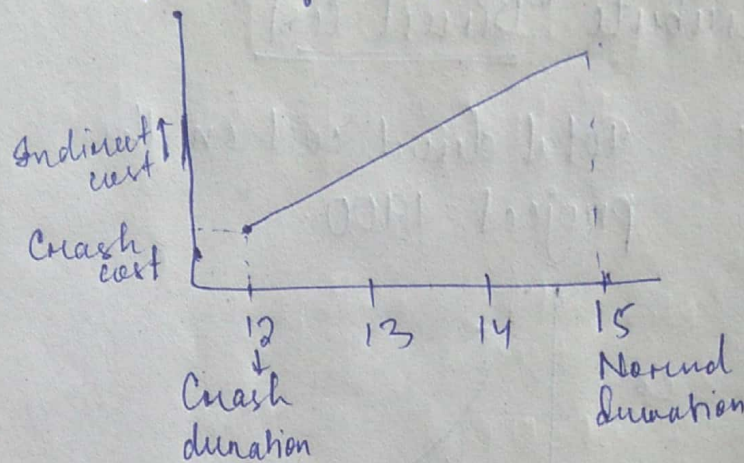 Indirect
cost
Crash
cost
12
13
14
15
Crash
duration
Normal
duration